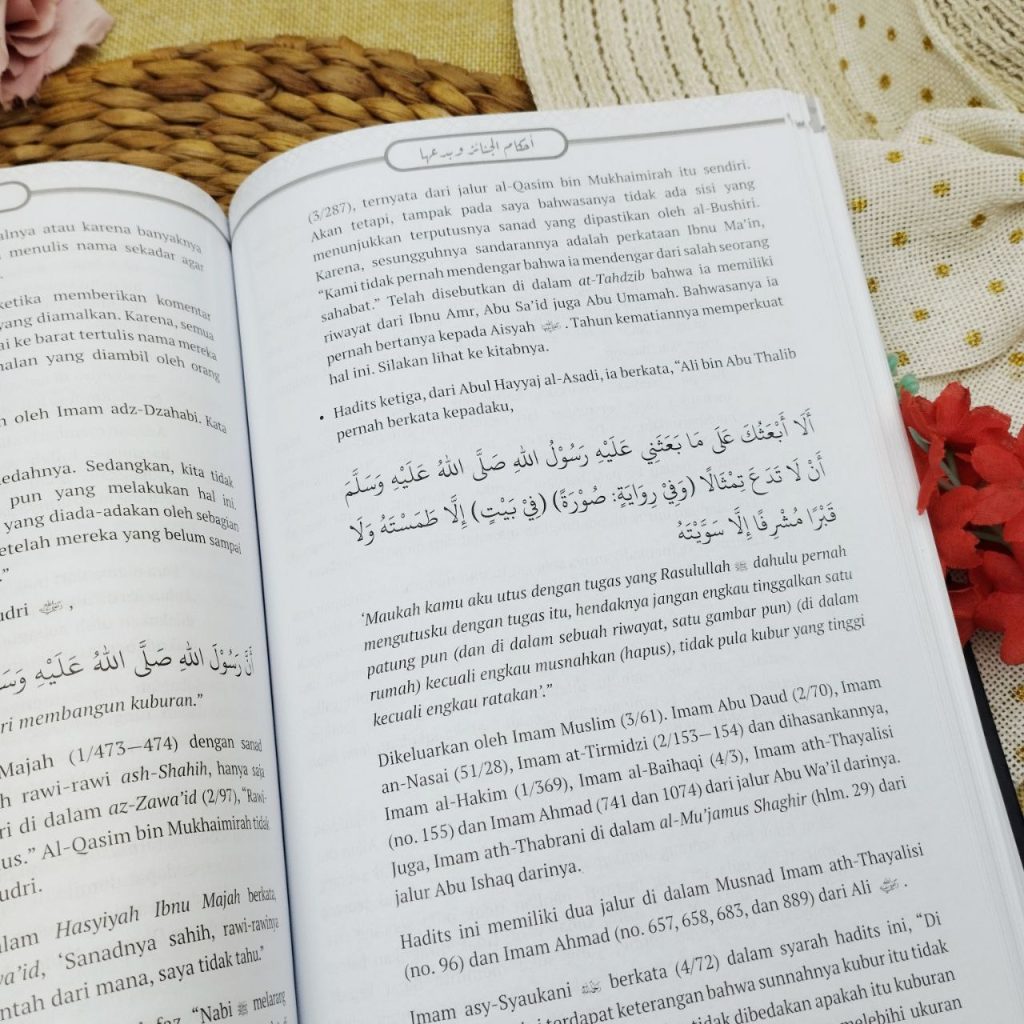 alnya atau karena banyaknya
menulis nama sekadar agar
ketika memberikan komentar
yang diamalkan. Karena, semua
ai ke barat tertulis nama mereka
malan yang diambil oleh orang
oleh Imam adz-Dzahabi. Kata
edahnya. Sedangkan, kita tidak
pun yang melakukan hal ini.
yang diada-adakan oleh sebagian
setelah mereka yang belum sampai
."
udri ,
أَنَّ رَسُوْلَ اللهِ صَلَّى اللهُ عَلَيْهِ وَسَ
ri membangun kuburan."
Majah (1/473—474) dengan sanad
h rawi-rawi ash-Shahih, hanya saja
ri di dalam az-Zawa'id (2/97), "Rawi-
us." Al-Qasim bin Mukhaimirah tidak
udri.
alam Hasyiyah Ibnu Majah berkata,
wa'id, 'Sanadnya sahih, rawi-rawinya
entah dari mana, saya tidak tahu.'
"Nabi ﷺ melarang
أحكام الجنائز وبدعها
(3/287), ternyata dari jalur al-Qasim bin Mukhaimirah itu sendiri.
Akan tetapi, tampak pada saya bahwasanya tidak ada sisi yang
menunjukkan terputusnya sanad yang dipastikan oleh al-Bushiri.
Karena, sesungguhnya sandarannya adalah perkataan Ibnu Ma'in,
"Kami tidak pernah mendengar bahwa ia mendengar dari salah seorang
sahabat." Telah disebutkan di dalam at-Tahdzib bahwa ia memiliki
riwayat dari Ibnu Amr, Abu Sa'id juga Abu Umamah. Bahwasanya ia
pernah bertanya kepada Aisyah . Tahun kematiannya memperkuat
hal ini. Silakan lihat ke kitabnya.
• Hadits ketiga, dari Abul Hayyaj al-Asadi, ia berkata, "Ali bin Abu Thalib
pernah berkata kepadaku,
أَلَا أَبْعَثُكَ عَلَى مَا بَعَثَنِي عَلَيْهِ رَسُوْلُ اللهِ صَلَّى اللهُ عَلَيْهِ وَسَلَّمَ
أَنْ لَا تَدَعَ تِمْثَالًا (وَفِيْ رِوَايَةٍ: صُوْرَةً) (فِيْ بَيْتٍ) إِلَّا طَمَسْتَهُ وَلَا
قَبْرًا مُشْرِفًا إِلَّا سَوَّيْتَهُ
'Maukah kamu aku utus dengan tugas yang Rasulullah ﷺ dahulu pernah
mengutusku dengan tugas itu, hendaknya jangan engkau tinggalkan satu
patung pun (dan di dalam sebuah riwayat, satu gambar pun) (di dalam
rumah) kecuali engkau musnahkan (hapus), tidak pula kubur yang tinggi
kecuali engkau ratakan'."
Dikeluarkan oleh Imam Muslim (3/61). Imam Abu Daud (2/70), Imam
an-Nasai (51/28), Imam at-Tirmidzi (2/153—154) dan dihasankannya,
Imam al-Hakim (1/369), Imam al-Baihaqi (4/3), Imam ath-Thayalisi
(no. 155) dan Imam Ahmad (741 dan 1074) dari jalur Abu Wa'il darinya.
Juga, Imam ath-Thabrani di dalam al-Mu'jamus Shaghir (hlm. 29) dari
jalur Abu Ishaq darinya.
Hadits ini memiliki dua jalur di dalam Musnad Imam ath-Thayalisi
(no. 96) dan Imam Ahmad (no. 657, 658, 683, dan 889) dari Ali .
Imam asy-Syaukani berkata (4/72) dalam syarah hadits ini, "Di
terdapat keterangan bahwa sunnahnya kubur itu tidak
tidak dibedakan apakah itu kuburan
melebihi ukuran